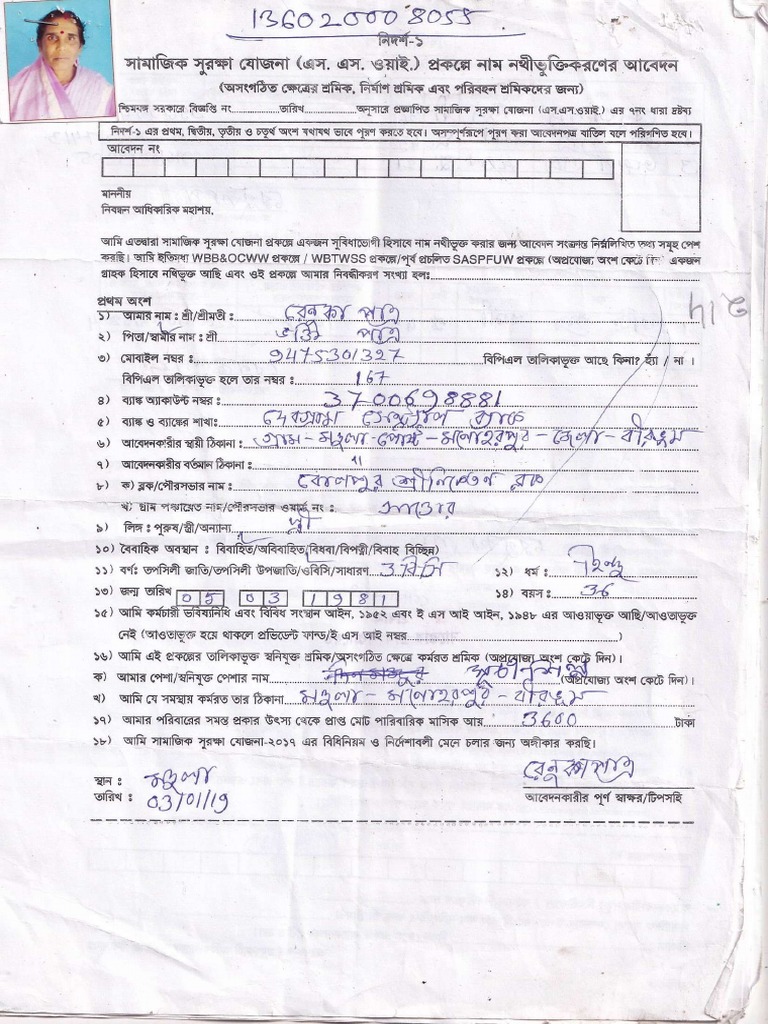 136020008055
নিদর্শ-১
সামাজিক সুরক্ষা যোজনা (এস. এস. ওয়াই.) প্রকল্পে নাম নথীভুক্তিকরণের আবেদন
(অসংগঠিত ক্ষেত্রের শ্রমিক, নির্মাণ শ্রমিক এবং পরিবহন শ্রমিকদের জন্য)
শ্চিমবঙ্গ সরকারে বিজ্ঞপ্তি নং............তারিখ............অনুসারে প্রজ্ঞাপিত সামাজিক সুরক্ষা যোজনা (এস.এস.ওয়াই.) এর ৭নং ধারা দ্রষ্টব্য
নিদর্শ-১ এর প্রথম, দ্বিতীয়, তৃতীয় ও চতুর্থ অংশ যথাযথ ভাবে পূরণ করতে হবে। অসম্পূর্ণরূপে পূরণ করা আবেদনপত্র বাতিল বলে পরিগণিত হবে।
আবেদন নং
মাননীয়
নিবন্ধন আধিকারিক মহাশয়,
আমি এতদ্বারা সামাজিক সুরক্ষা যোজনা প্রকল্পে একজন সুবিধাভোগী হিসাবে নাম নথীভুক্ত করার জন্য আবেদন সংক্রান্ত নিম্নলিখিত তথ্য সমূহ পেশ
করছি। আমি ইতিমধ্য WBB&OCWW প্রকল্পে / WBTWSS প্রকল্পে/পূর্ব প্রচলিত SASPFUW প্রকল্পে (অপ্রযোজ্য অংশ কেটে দিন) একজন
গ্রাহক হিসাবে নথিভুক্ত আছি এবং ওই প্রকল্পে আমার নিবন্ধীকরণ সংখ্যা হল:
প্রথম অংশ
১) আমার নাম : শ্রী/শ্রীমতী : রেনুকা পাত্র
২) পিতা/স্বামীর নাম : শ্রী পাত্র
৩) মোবাইল নম্বর : 9475301327 বিপিএল তালিকাভুক্ত আছে কিনা? হ্যাঁ / না ।
বিপিএল তালিকাভুক্ত হলে তার নম্বর : 167
৪) ব্যাঙ্ক অ্যাকাউন্ট নম্বর : 3700698881
৫) ব্যাঙ্ক ও ব্যাঙ্কের শাখা: সেন্ট্রাল ব্যাঙ্ক
৬) আবেদনকারীর স্থায়ী ঠিকানা : গ্রাম - মহুলা - পোষ্ট - মনোহরপুর - জেলা - বীরভূম
৭) আবেদনকারীর বর্তমান ঠিকানা : "
৮) ক) ব্লক/পৌরসভার নাম : বোলপুর শ্রীনিকেতন ব্লক
খ) গ্রাম পঞ্চায়েত নাম/পৌরসভার ওয়ার্ড নং :
৯) লিঙ্গ : পুরুষ/স্ত্রী/অন্যান্য স্ত্রী
১০) বৈবাহিক অবস্থান : বিবাহিত/অবিবাহিত/বিধবা/বিপত্নী/বিবাহ বিচ্ছিন্ন)
১১) বর্ণ: তপসিলী জাতি/তপসিলী উপজাতি/ওবিসি/সাধারণ ওবিসি ১২) ধর্ম : হিন্দু
১৩) জন্ম তারিখ 05 03 1981 ১৪) বয়স : 36
১৫) আমি কর্মচারী ভবিষ্যনিধি এবং বিবিধ সংস্থান আইন, ১৯৫২ এবং ই এস আই আইন, ১৯৪৮ এর আওয়াভুক্ত আছি/আওতাভুক্ত
নেই (আওতাভুক্ত হয়ে থাকলে প্রভিডেন্ট ফান্ড/ই এস আই নম্বর)
১৬) আমি এই প্রকল্পের তালিকাভুক্ত স্বনিযুক্ত শ্রমিক/অসংগঠিত ক্ষেত্রে কর্মরত শ্রমিক (অপ্রযোজ্য অংশ কেটে দিন)।
ক) আমার পেশা/স্বনিযুক্ত পেশার নাম (অপ্রযোজ্য অংশ কেটে দিন)।
খ) আমি যে সমস্থায় কর্মরত তার ঠিকানা মহুলা - মনোহরপুর - বীরভূম
১৭) আমার পরিবারের সমস্ত প্রকার উৎস্য থেকে প্রাপ্ত মোট পারিবারিক মাসিক আয় 3600 টাকা
১৮) আমি সামাজিক সুরক্ষা যোজনা-২০১৭ এর বিধিনিয়ম ও নির্দেশাবলী মেনে চলার জন্য অঙ্গীকার করছি।
স্থান : মহুলা রেনুকা পাত্র
তারিখ : 03/01/19 আবেদনকারীর পূর্ণ স্বাক্ষর/টিপসহি